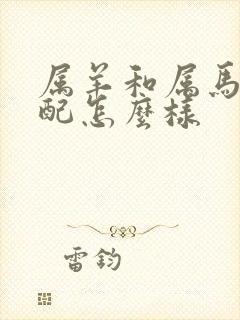 属羊和属馬
配怎麼樣
雷鈞